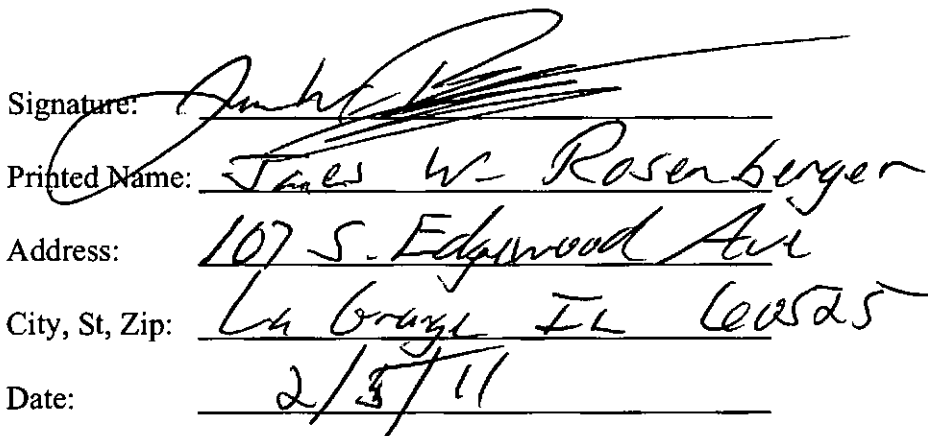 Signature:
Printed Name: James W. Rosenberger
Address: 107 S. Edgewood Ave
City, St, Zip: La Grange IL 60525
Date: 2/3/11